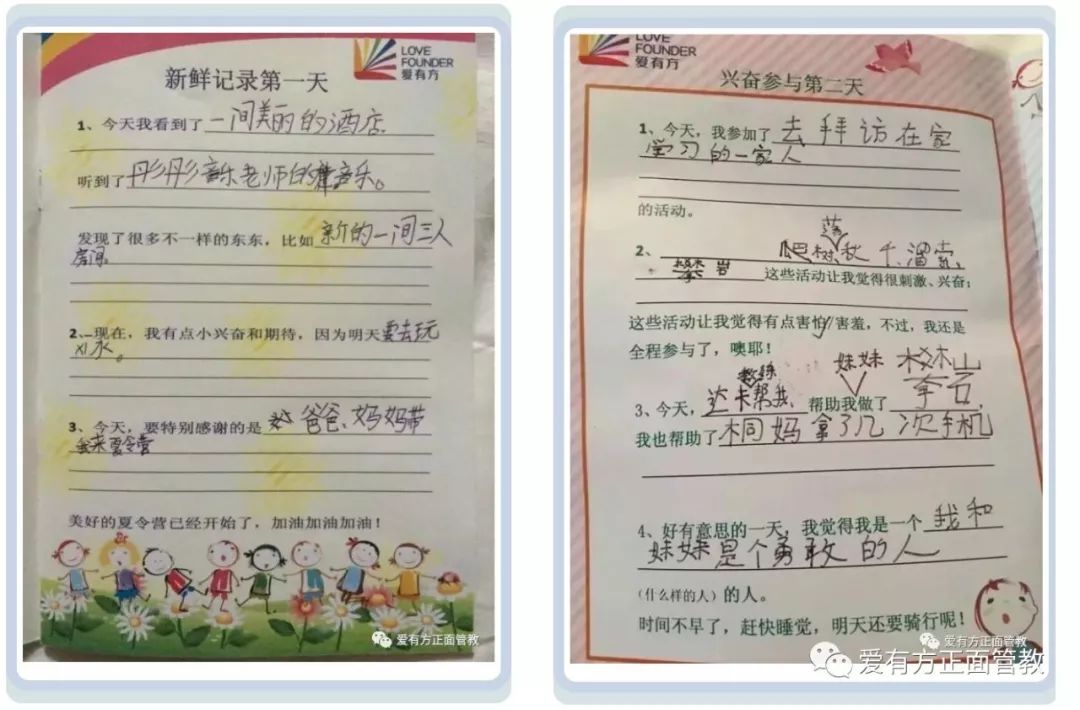 LOVE
FOUNDER
爱有方
新鲜记录第一天
1、今天我看到了一间美丽的酒店
听到了彤彤音乐老师的音乐。
发现了很多不一样的东东，比如新的一间三人
房间
2、现在，我有点小兴奋和期待，因为明天要去玩
水。
3、今天，要特别感谢的是爸爸、妈妈带
我来夏令营
美好的夏令营已经开始了，加油加油加油！
爱有方正面管教
LOVE
FOUNDER
爱有方
兴奋参与第二天
1、今天，我参加了去拜访在家
学习的一家人
的活动。
荡
2、爬树、秋千、溜索、
攀岩这些活动让我觉得很刺激、兴奋；
这些活动让我觉得有点害怕/害羞，不过，我还是
全程参与了，噢耶！
教练 妹妹
3、今天，达卡帮我帮助我做了攀岩
我也帮助了桐妈拿了几次手机
4、好有意思的一天，我觉得我是一个我和
妹妹是个勇敢的人
（什么样的人）的人。
时间不早了，赶快睡觉，明天还要骑行呢！
爱有方正面管教
爱有方正面管教